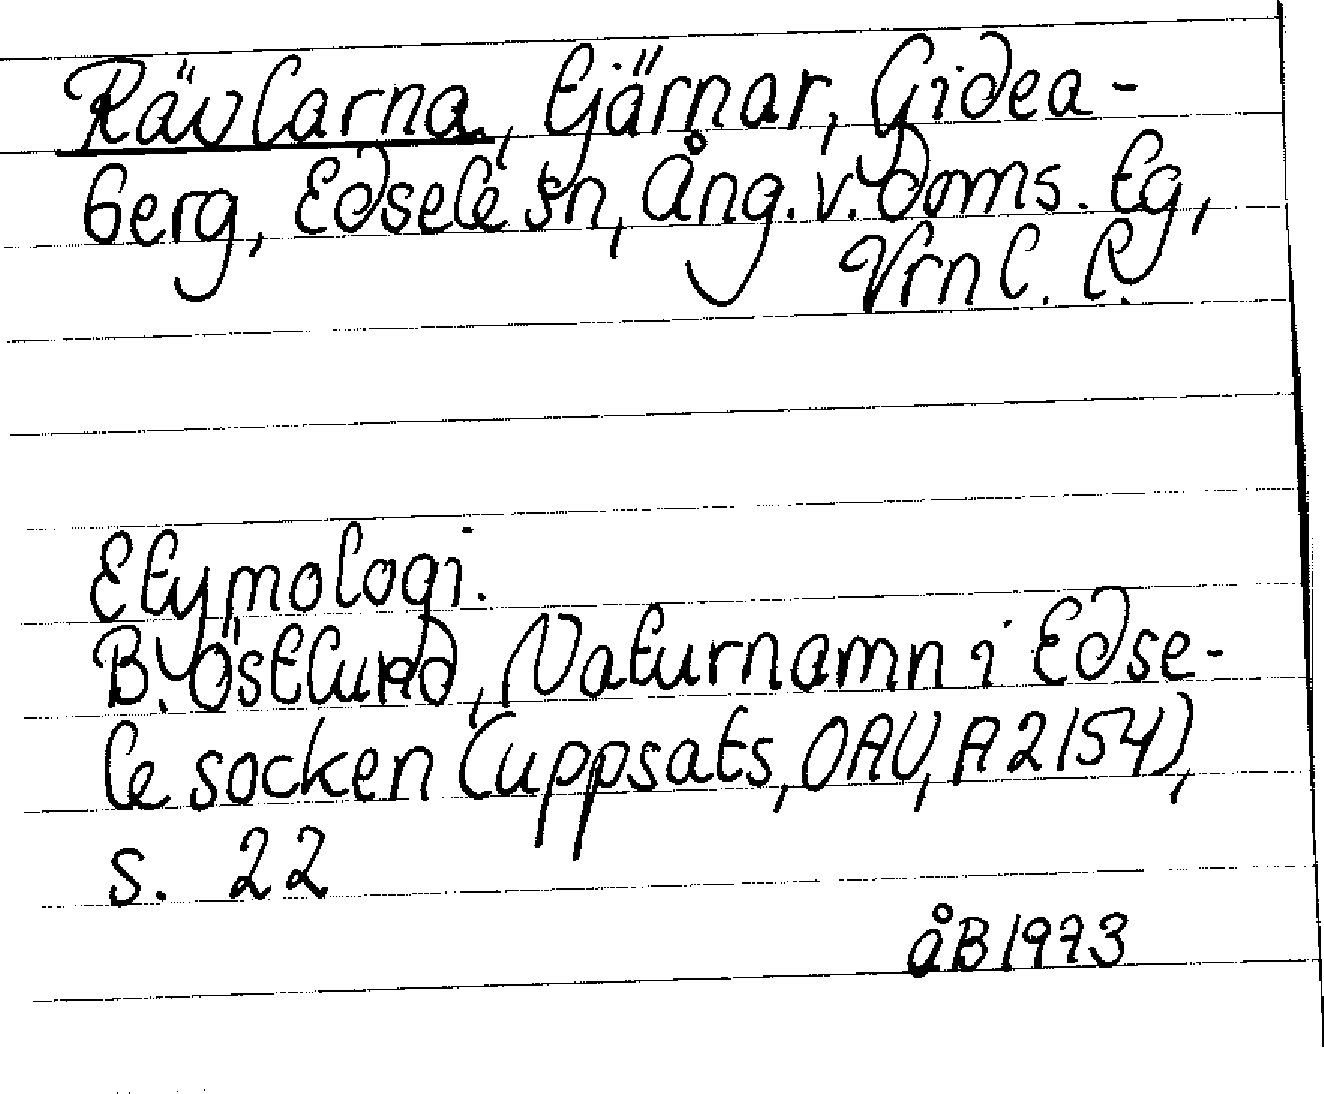 Rävlarna, tjärnar, Gidea-
berg, Edsele sn, Ång. v. doms. tg,
Vrnl. l.
Etymologi.
B. Östlund, Naturnamn i Edse-
le socken (uppsats, OAU, A 2154),
s. 22
åB 1973